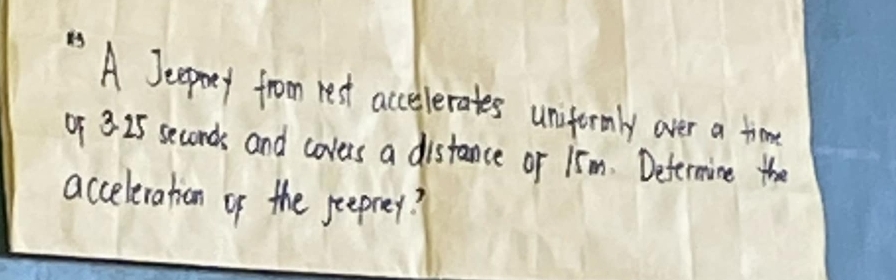 "A Jeepney from rest accelerates uniformly over a time
of 3.25 seconds and covers a distance of 15m. Determine the
acceleration of the jeepney?